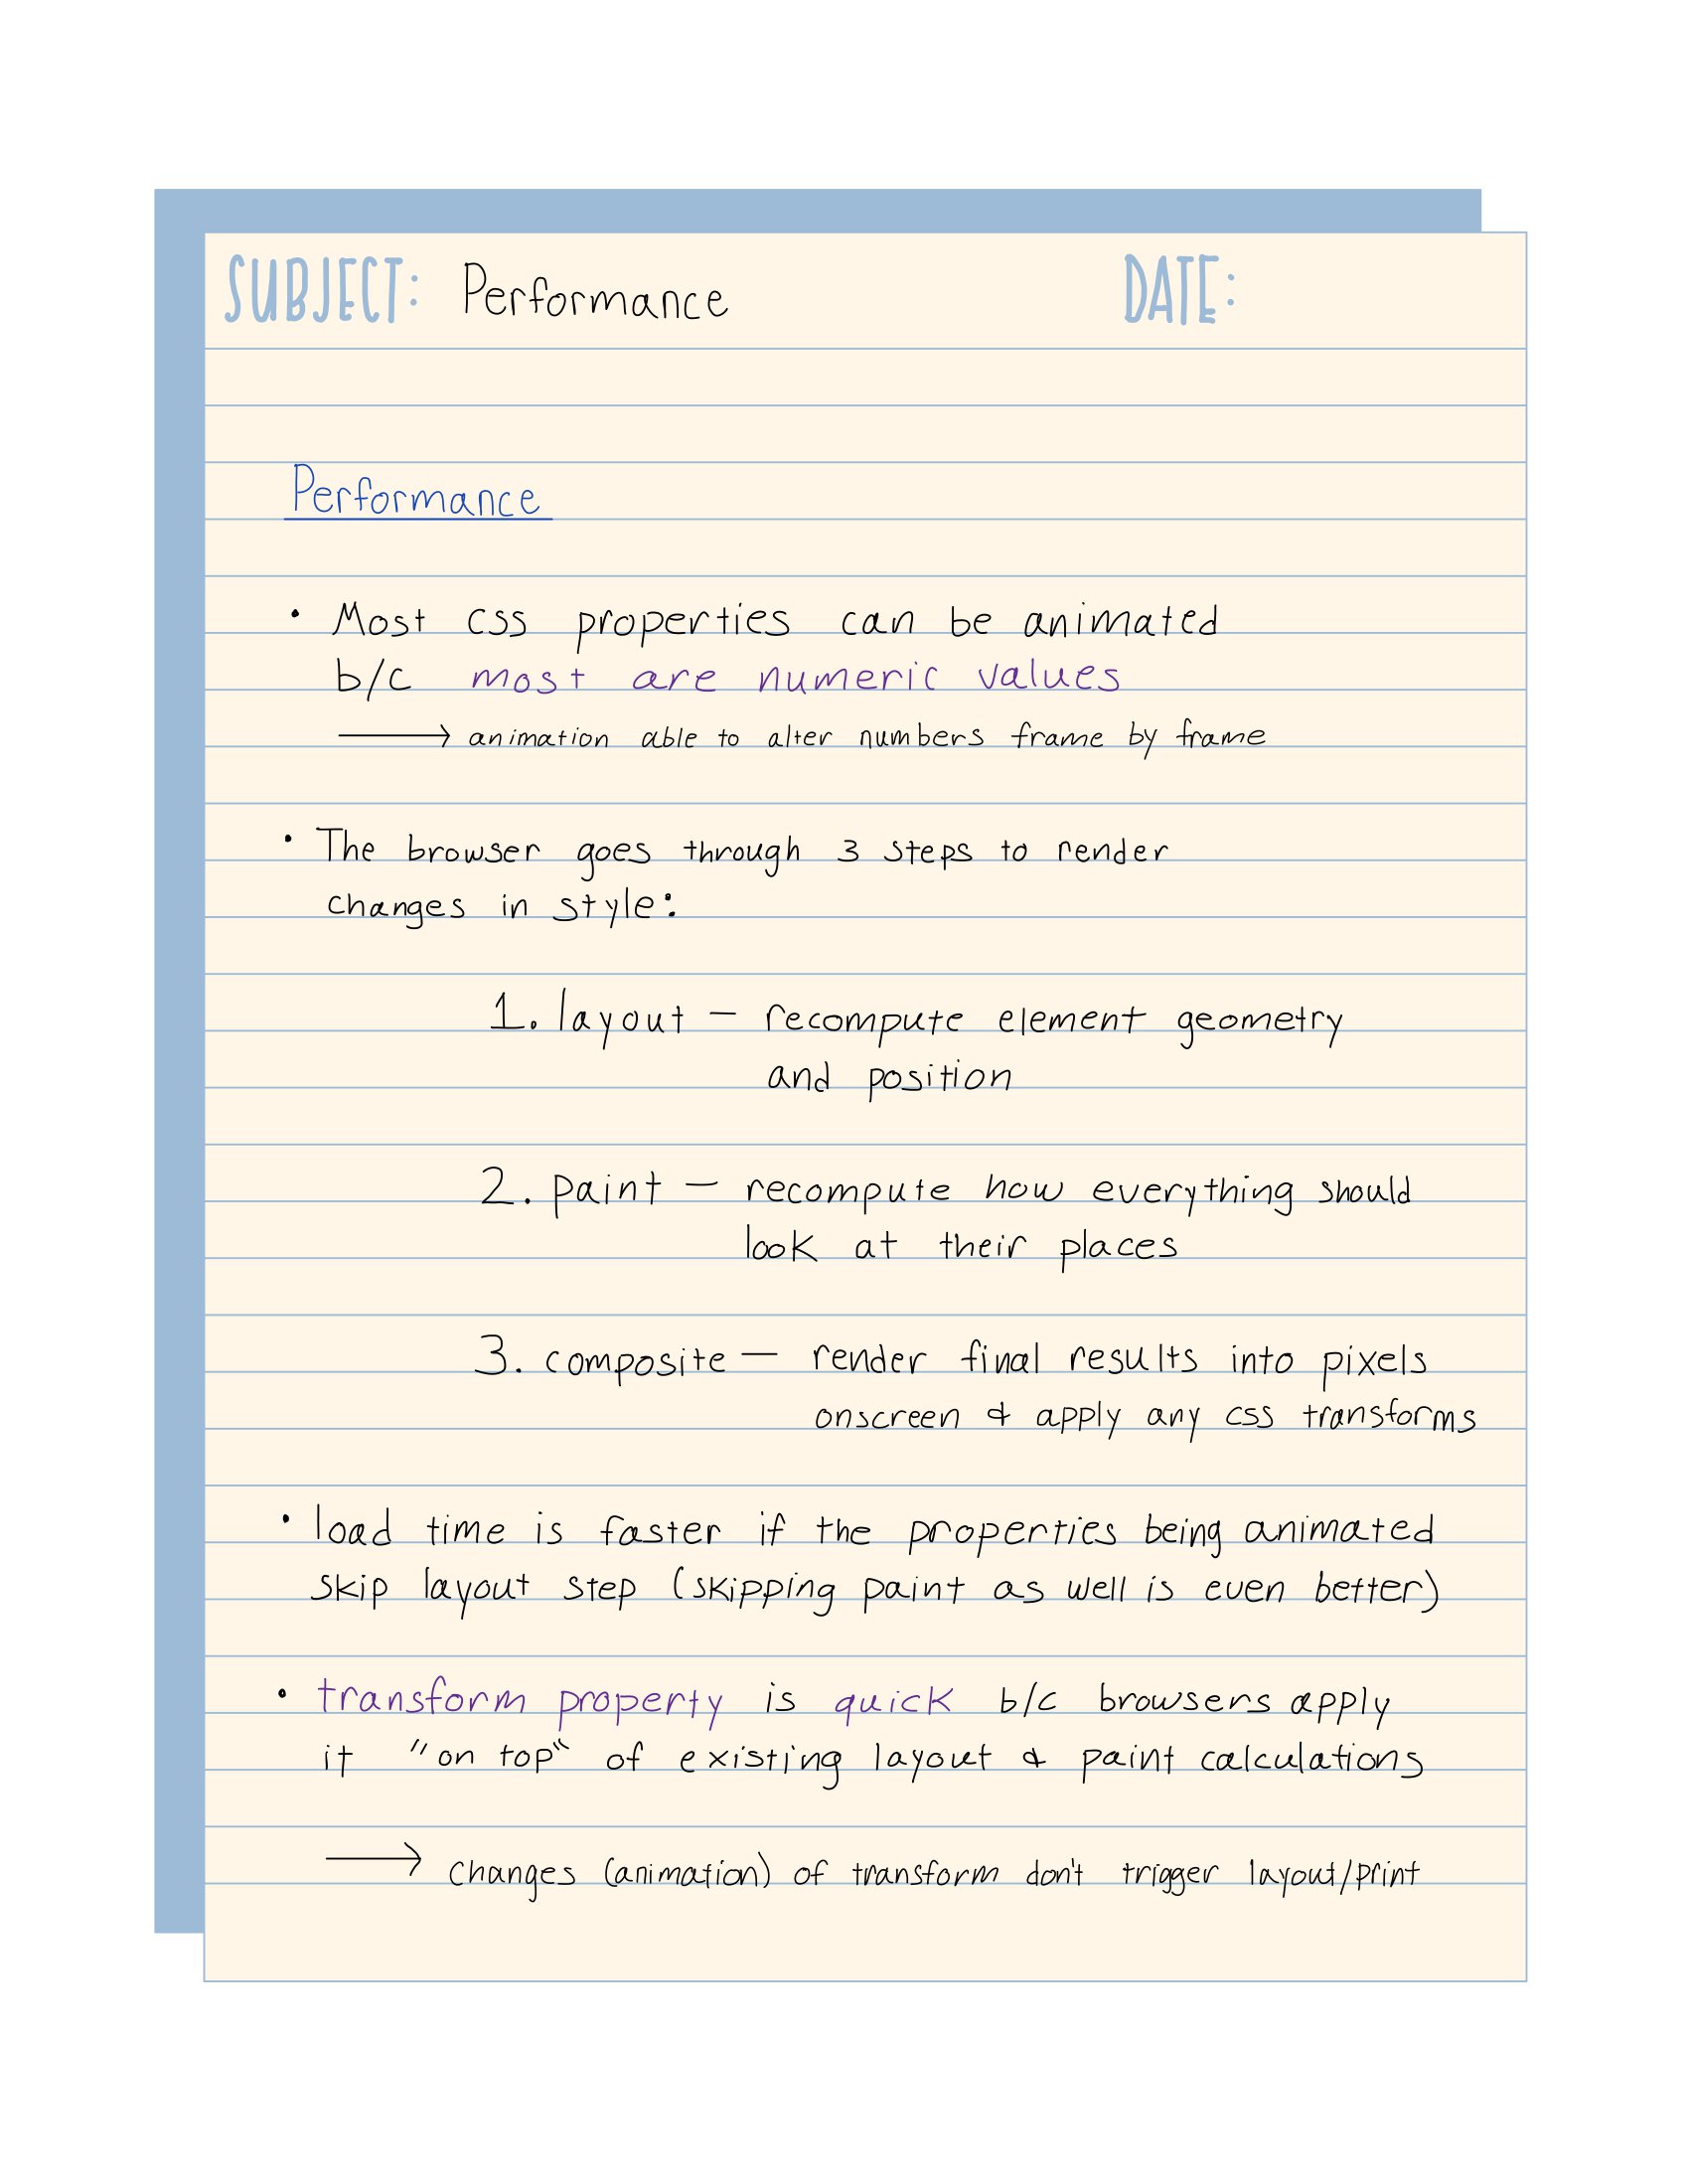 SUBJECT: Performance DATE:
Performance
• Most css properties can be animated
b/c most are numeric values
→ animation able to alter numbers frame by frame
• The browser goes through 3 steps to render
changes in style:
1. layout — recompute element geometry
and position
2. paint — recompute how everything should
look at their places
3. composite — render final results into pixels
onscreen & apply any css transforms
• load time is faster if the properties being animated
skip layout step (skipping paint as well is even better)
• transform property is quick b/c browsers apply
it "on top" of existing layout & paint calculations
→ changes (animation) of transform don't trigger layout/print